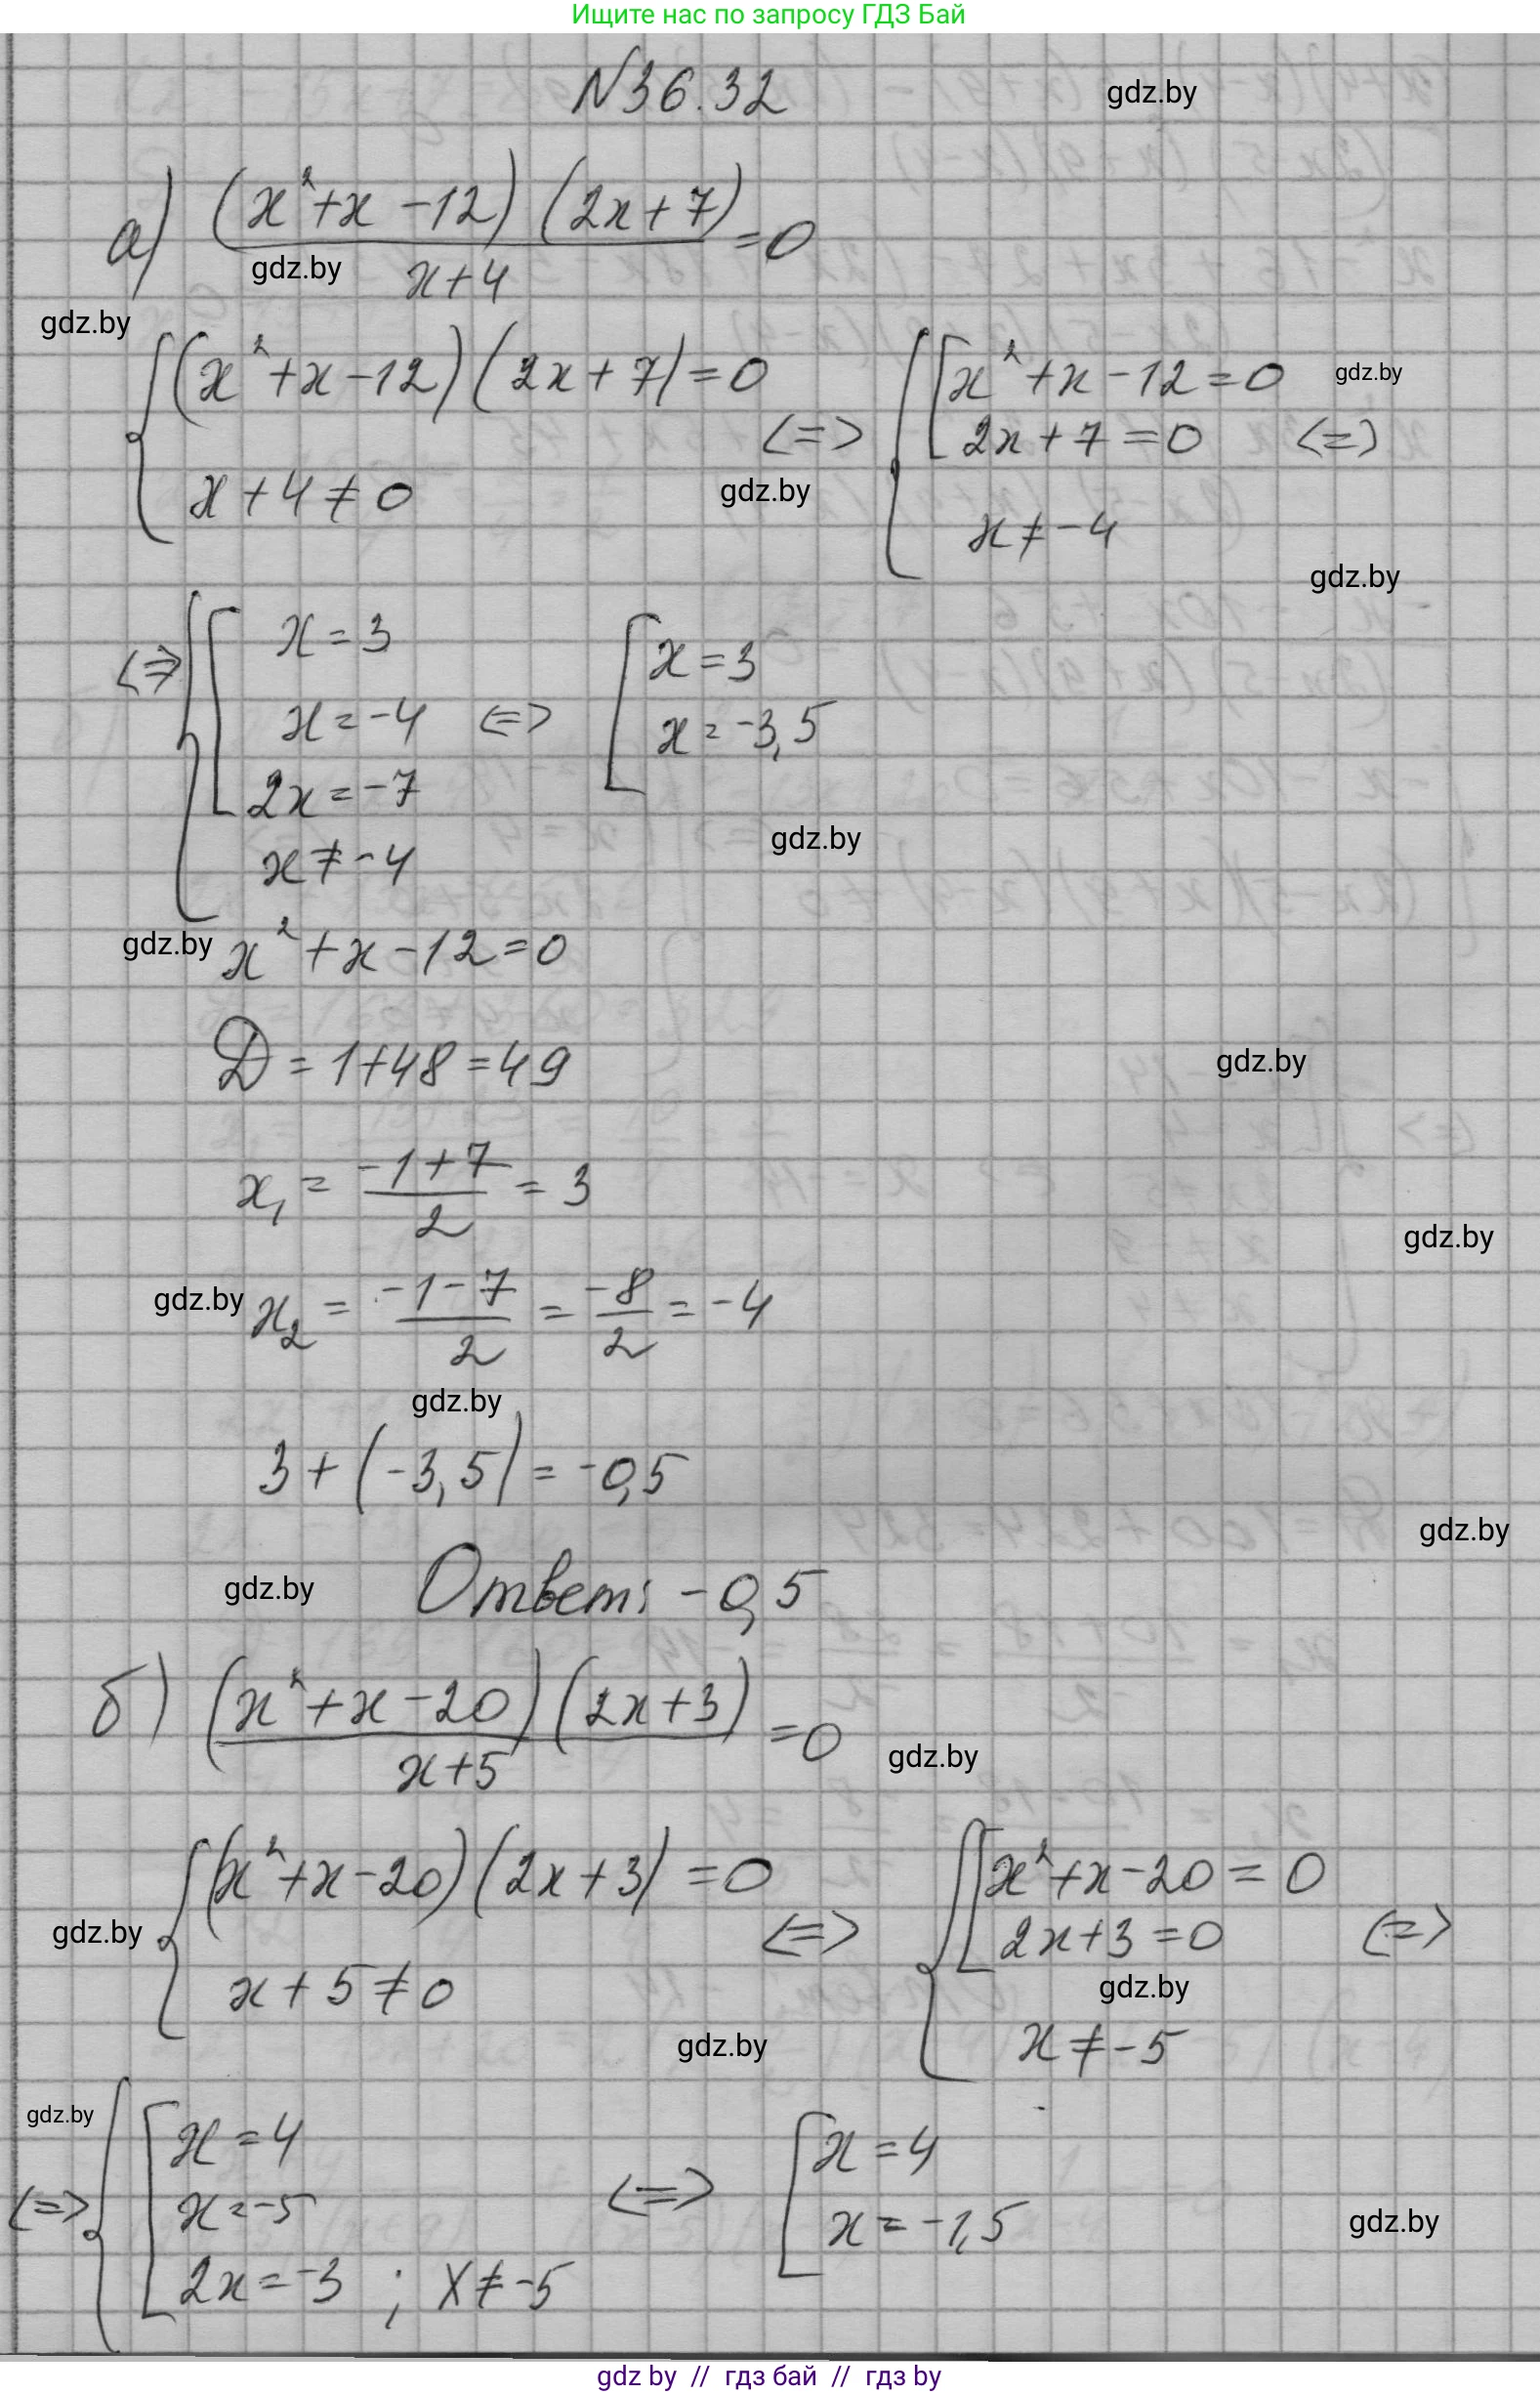 Ищите нас по запросу ГДЗ Бай
N36.32
gdz.by
а) (x²+x-12)(2x+7)/x+4 =0
gdz.by
gdz.by
{(x²+x-12)(2x+7)=0 <=> {[x²+x-12=0
gdz.by
2x+7=0 <=>
x+4≠0
gdz.by
x≠-4
gdz.by
<=> {[x=3
x=-4 <=> [x=3
x=-3,5
2x=-7
x≠-4
gdz.by
gdz.by
x²+x-12=0
D=1+48=49
gdz.by
x₁ = -1+7/2 = 3
gdz.by
gdz.by
x₂ = -1-7/2 = -8/2 = -4
gdz.by
3+(-3,5)=-0,5
gdz.by
gdz.by
Ответ: -0,5
б) (x²+x-20)(2x+3)/x+5 =0
gdz.by
{(x²+x-20)(2x+3)=0 <=> {[x²+x-20=0
gdz.by
2x+3=0 <=>
x+5≠0
gdz.by
gdz.by
x≠-5
gdz.by
<=> {[x=4
x=-5
2x=-3 ; x≠-5
<=> [x=4
x=-1,5
gdz.by
gdz by // гдз бай // гдз by